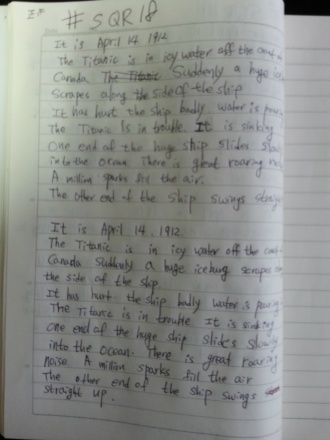 #SQR18
It is April 14 1912
The Titanic is in icy water off the coast
Canada The Titanic Suddenly a huge
Scrapes along the side of the ship
It has hurt the ship badly water is pourin
The Titanic is in trouble. It is sinking
One end of the huge ship slides slow
into the ocean There is great roaring
A million sparks fill the air.
The other end of the ship swings straig
It is April 14. 1912
The Titanic is in icy water off the coast
Canada Suddenly a huge iceburg scrapes
the side of the ship.
It has hurt the ship badly water is pouring
The Titanic is in trouble It is sinking
One end of the huge ship slides slowly
into the ocean. There is great roaring
noise A million sparks fill the air
The other end of the ship swings
straight up.